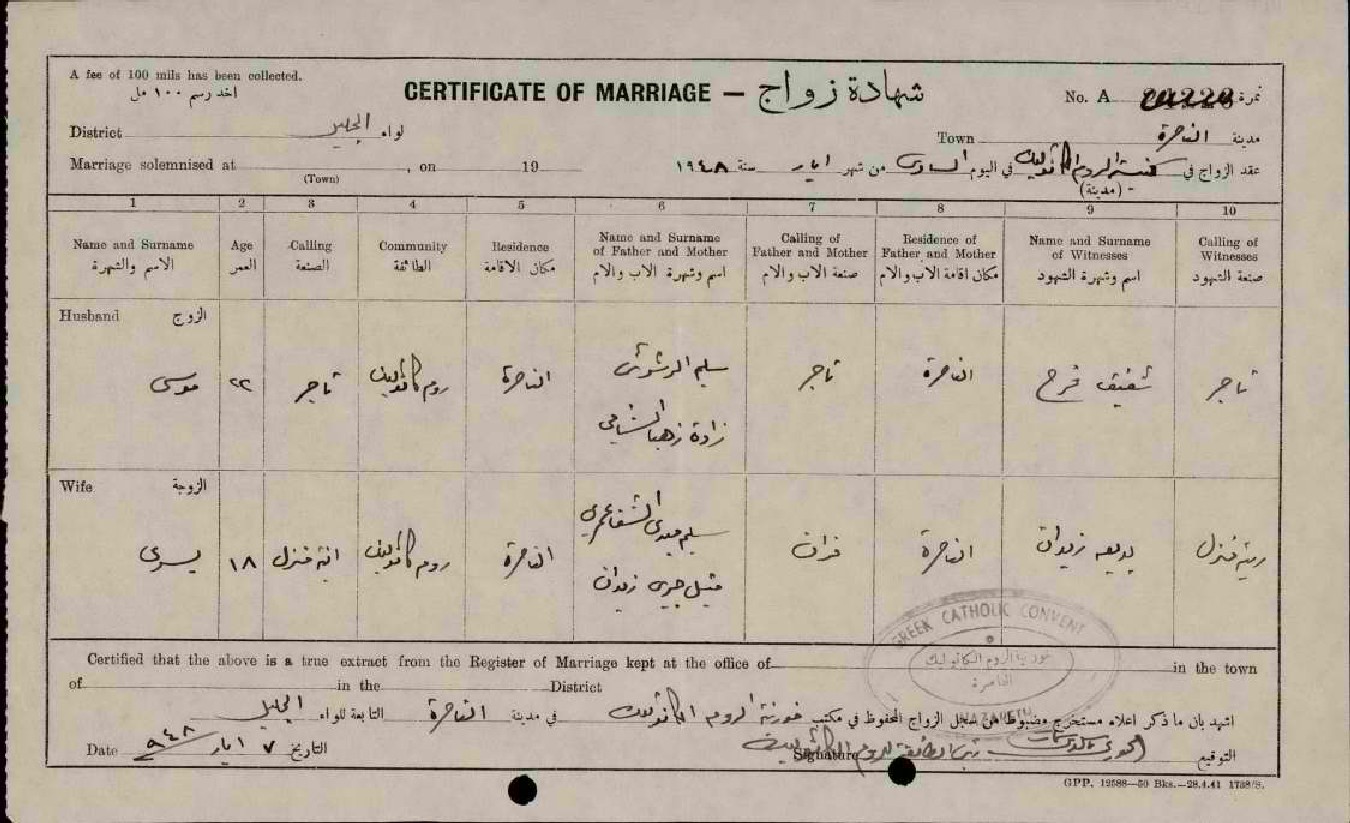 A fee of 100 mils has been collected.
اخذ رسم ١٠٠ مل
CERTIFICATE OF MARRIAGE – شهادة زواج
No. A نمرة
District الجليل لواء
Town الناصرة مدينة
Marriage solemnised at , on 19
(Town)
عقد الزواج في كنيسة الروم الكاثوليك في اليوم السادس من شهر ايار سنة ١٩٤٨
(مدينة)
1 2 3 4 5 6 7 8 9 10
Name and Surname الاسم والشهرة
Age العمر
Calling الصنعة
Community الطائفة
Residence مكان الاقامة
Name and Surname of Father and Mother اسم وشهرة الاب والام
Calling of Father and Mother صنعة الاب والام
Residence of Father and Mother مكان اقامة الاب والام
Name and Surname of Witnesses اسم وشهرة الشهود
Calling of Witnesses صنعة الشهود
Husband الزوج
موسى ٢٢ تاجر روم كاثوليك الناصرة سليم تاجر الناصرة شفيق فرح تاجر
Wife الزوجة
يسرى ١٨ روم كاثوليك الناصرة سليم فران الناصرة بديعه زيدان
جبرى زيدان
Certified that the above is a true extract from the Register of Marriage kept at the office of in the town
of in the District
اشهد بان ما ذكر اعلاه مستخرج مضبوط من سجل الزواج المحفوظ في مكتب خورنة الروم الكاثوليك في مدينة الناصرة التابعة للواء الجليل
Date ٩٤٨ ايار ٧ التاريخ
Signature التوقيع
GREEK CATHOLIC CONVENT
خورنية الروم الكاثوليك
الناصرة
NAZARETH
GPP. 12588—50 Bks.—28.4.41 1738/S.